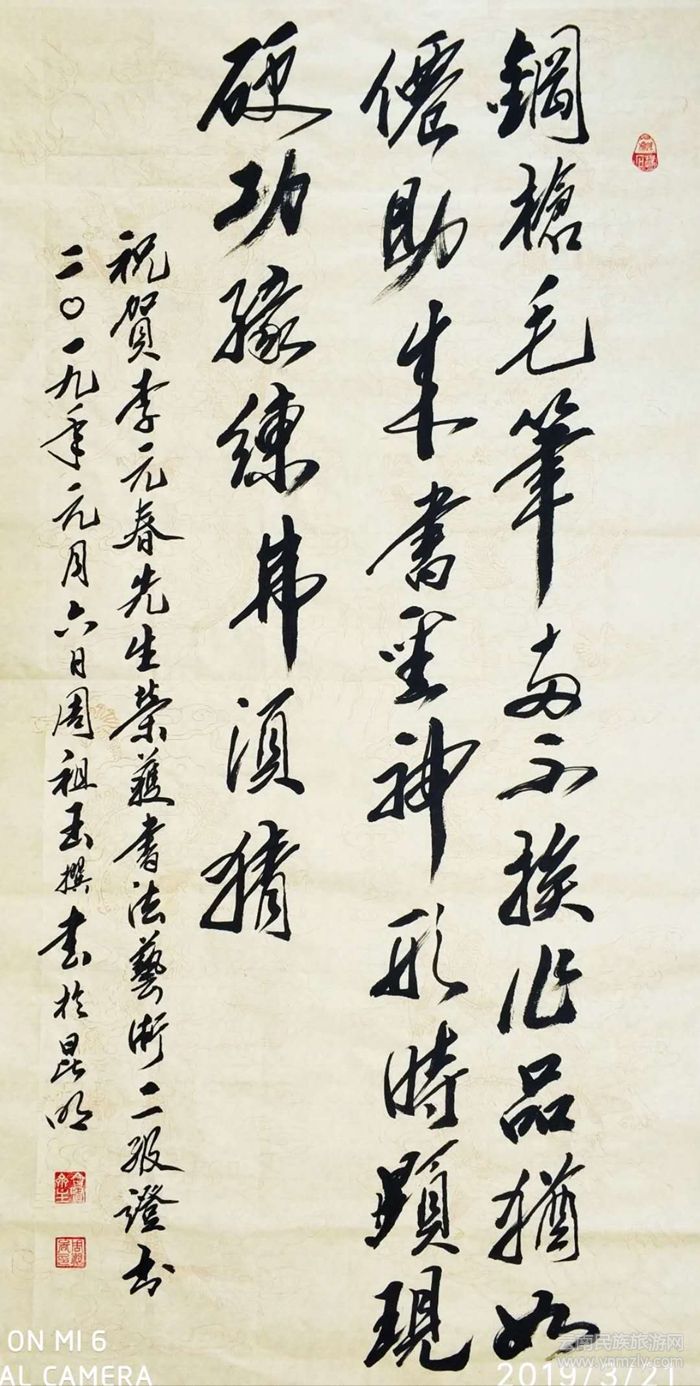 鋼槍毛筆両不挨作品猶如
僊助来書聖神形時顕現
硬功緣練弗須猜
祝賀李元春先生榮獲書法藝術二級證书
二〇一九年元月六日周祖玉撰書於昆明
ON MI 6
AL CAMERA
2019/3/21
云南民族旅游网
www.ynmzly.com